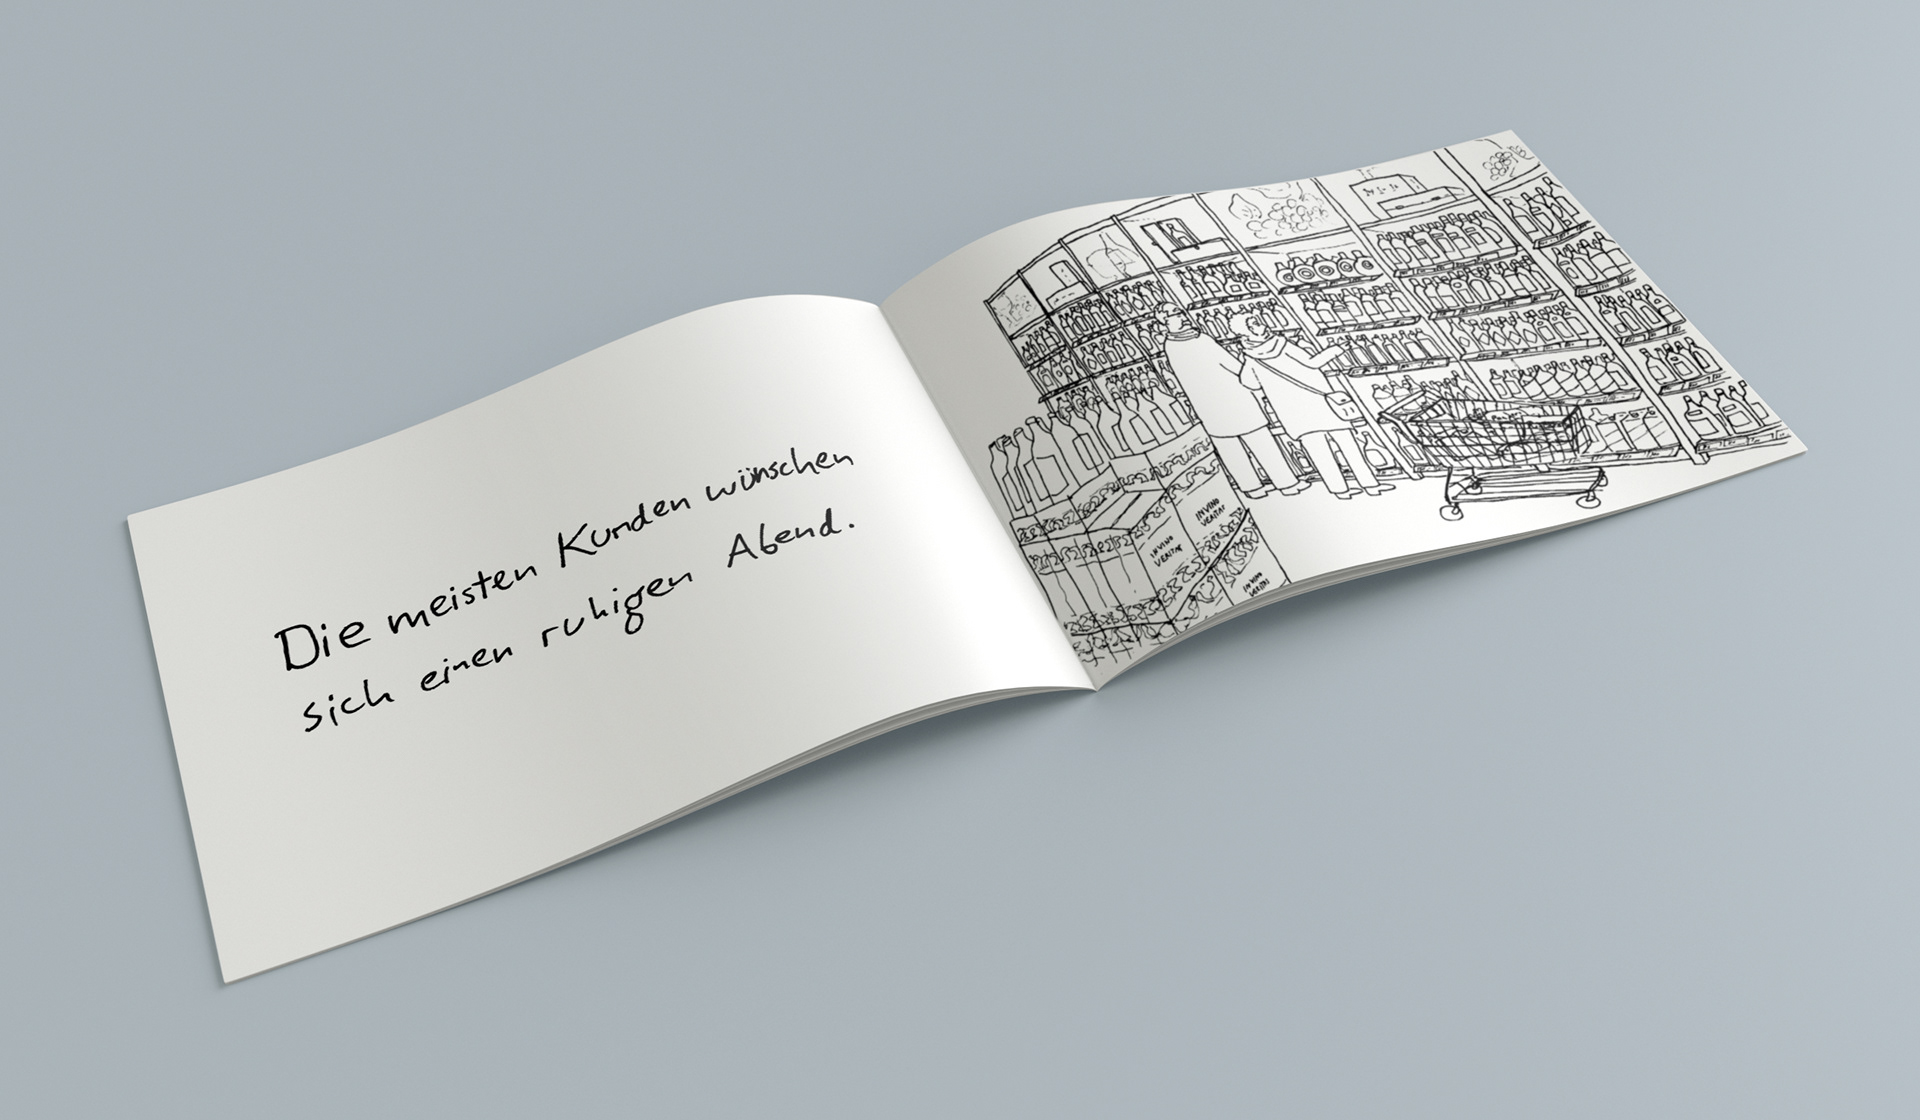 Die meisten Kunden wünschen
sich einen ruhigen Abend.
IN VINO
VERITAS
IN VINO
VERITAS
IN VINO
VERITAS